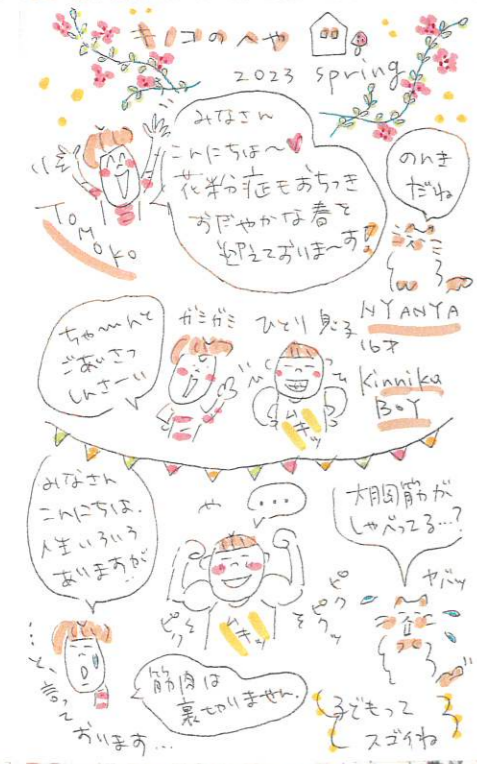 キノコのへや
2023 spring
みなさん
こんにちは〜
花粉症もおちつき
おだやかな春を
迎えておりま〜す!
のんき
だね
TOMOKO
NYANYA
16才
ちゃ〜んと
ごあいさつ
しんさーい
ガミガミ
ひとり息子
Kinniku
BOY
ムキッ
みなさん
こんにちは。
人生いろいろ
ありますが
や
...
大胸筋が
しゃべってる…?
ヤバッ
ピク
ピクッ
ピクッ
ムキッ
…と、言って
おります…
筋肉は
裏切りません。
子どもって
スゴイね